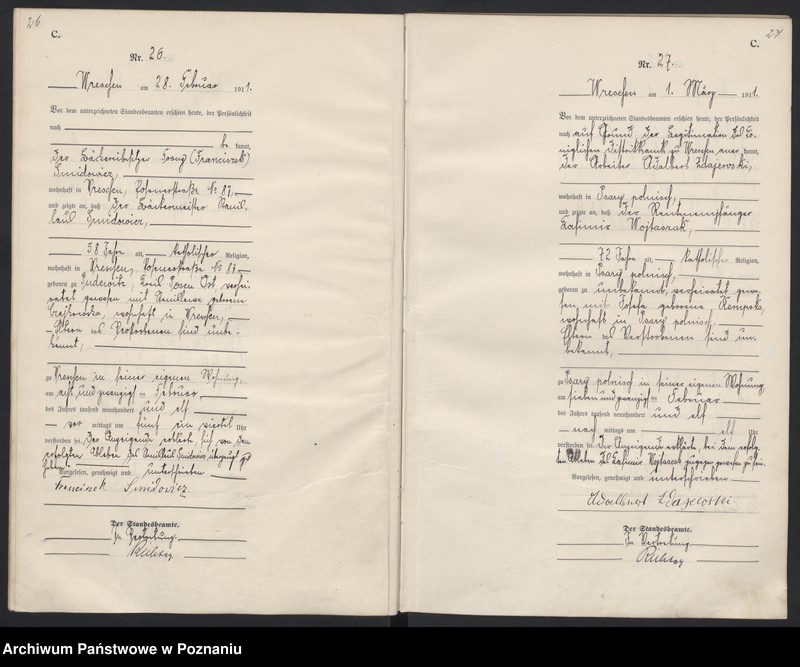 26.
C.
Nr. 26.
Wreschen am 28. Februar 1911.
Vor dem unterzeichneten Standesbeamten erschien heute, der Persönlichkeit
nach
be kannt,
der Bäckereibesitzer Franz (Franciszek)
Smidowicz,
wohnhaft in Wreschen, Posenerstraße No 87,
und zeigte an, daß der Bäckermeister Stanis-
laus Smidowicz,
58 Jahre alt, katholischer Religion,
wohnhaft in Wreschen, Posenerstraße No 87
geboren zu Pudewitz, Kreis Posen Ost, verhei-
ratet gewesen mit Stanislawa geborene
wohnhaft in Wreschen,
Eltern des Verstorbenen sind unbe-
kannt,
zu Wreschen in seiner eigenen Wohnung,
am acht und zwanzigsten Februar
des Jahres tausend neunhundert und elf
vor mittags um fünf ein viertel Uhr
verstorben sei. Der Anzeigende erklärte, sich von dem
erfolgten Ableben des Stanislaus Smidowicz überzeugt zu
haben.
Vorgelesen, genehmigt und unterschrieben
Franciszek Smidowicz
Der Standesbeamte.
In Vertretung.
27
C.
Nr. 27.
Wreschen am 1. März 1911.
Vor dem unterzeichneten Standesbeamten erschien heute, der Persönlichkeit
nach auf Grund der Legitimation des Kö-
niglichen Distriktsamts zu Wreschen aner kannt,
der Arbeiter Adalbert Zdajewski,
wohnhaft in Psary polnisch,
und zeigte an, daß der Rentenempfänger
Kasimir Wojtaszak,
72 Jahre alt, katholischer Religion,
wohnhaft in Psary polnisch,
geboren zu unbekannt, verheiratet gewe-
sen mit Josefa geborene
wohnhaft in Psary polnisch,
Eltern des Verstorbenen sind un-
bekannt,
zu Psary polnisch in seiner eigenen Wohnung
am sieben und zwanzigsten Februar
des Jahres tausend neunhundert und elf
nach mittags um elf Uhr
verstorben sei. Der Anzeigende erklärte bei dem erfolg-
ten Ableben des Kasimir Wojtaszak zugegen gewesen zu sein.
Vorgelesen, genehmigt und unterschrieben
Adalbert Zdajewski
Der Standesbeamte.
In Vertretung.
Archiwum Państwowe w Poznaniu